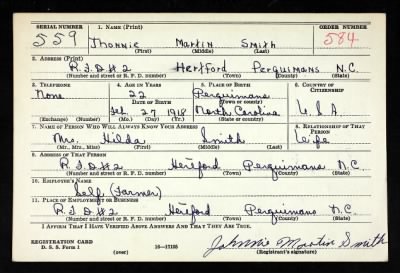 SERIAL NUMBER 1. NAME (Print) ORDER NUMBER
559 Thonnie Martin Smith 584
(First) (Middle) (Last)
2. ADDRESS (Print)
R.F.D#2 Hertford Perquimans N.C.
(Number and street or R. F. D. number) (Town) (County) (State)
3. TELEPHONE 4. AGE IN YEARS 5. PLACE OF BIRTH 6. COUNTRY OF CITIZENSHIP
None 22 Perquimans
DATE OF BIRTH (Town or county)
Feb. 27 1918 North Carolina U S A
(Exchange) (Number) (Mo.) (Day) (Yr.) (State or country)
7. NAME OF PERSON WHO WILL ALWAYS KNOW YOUR ADDRESS 8. RELATIONSHIP OF THAT PERSON
Mrs. Hilda Smith Wife
(Mr., Mrs., Miss) (First) (Middle) (Last)
9. ADDRESS OF THAT PERSON
R.F.D#2 Hertford Perquimans N.C.
(Number and street or R. F. D. number) (Town) (County) (State)
10. EMPLOYER'S NAME
Self (Farmer)
11. PLACE OF EMPLOYMENT OR BUSINESS
R.F.D#2 Hertford Perquimans N.C.
(Number and street or R. F. D. number) (Town) (County) (State)
I AFFIRM THAT I HAVE VERIFIED ABOVE ANSWERS AND THAT THEY ARE TRUE.
REGISTRATION CARD
D. S. S. Form 1 (over) 16—17105 Johnnie Martin Smith
(Registrant's signature)